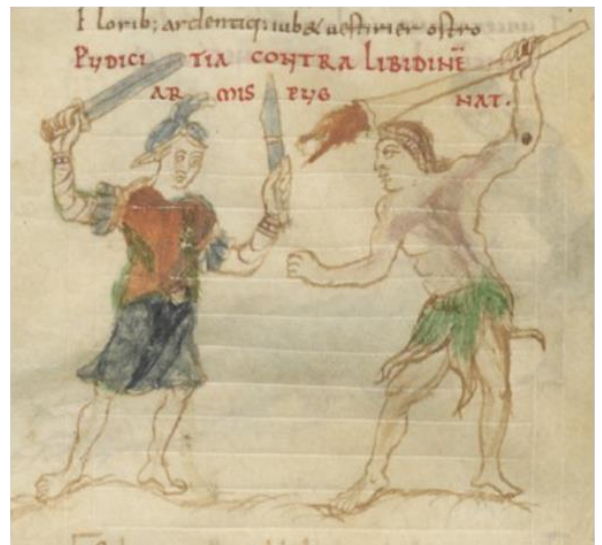 Floribus; ardentiq; iuba & vestirier ostro
PUDICITIA CONTRA LIBIDINĒ
ARMIS PUGNAT.